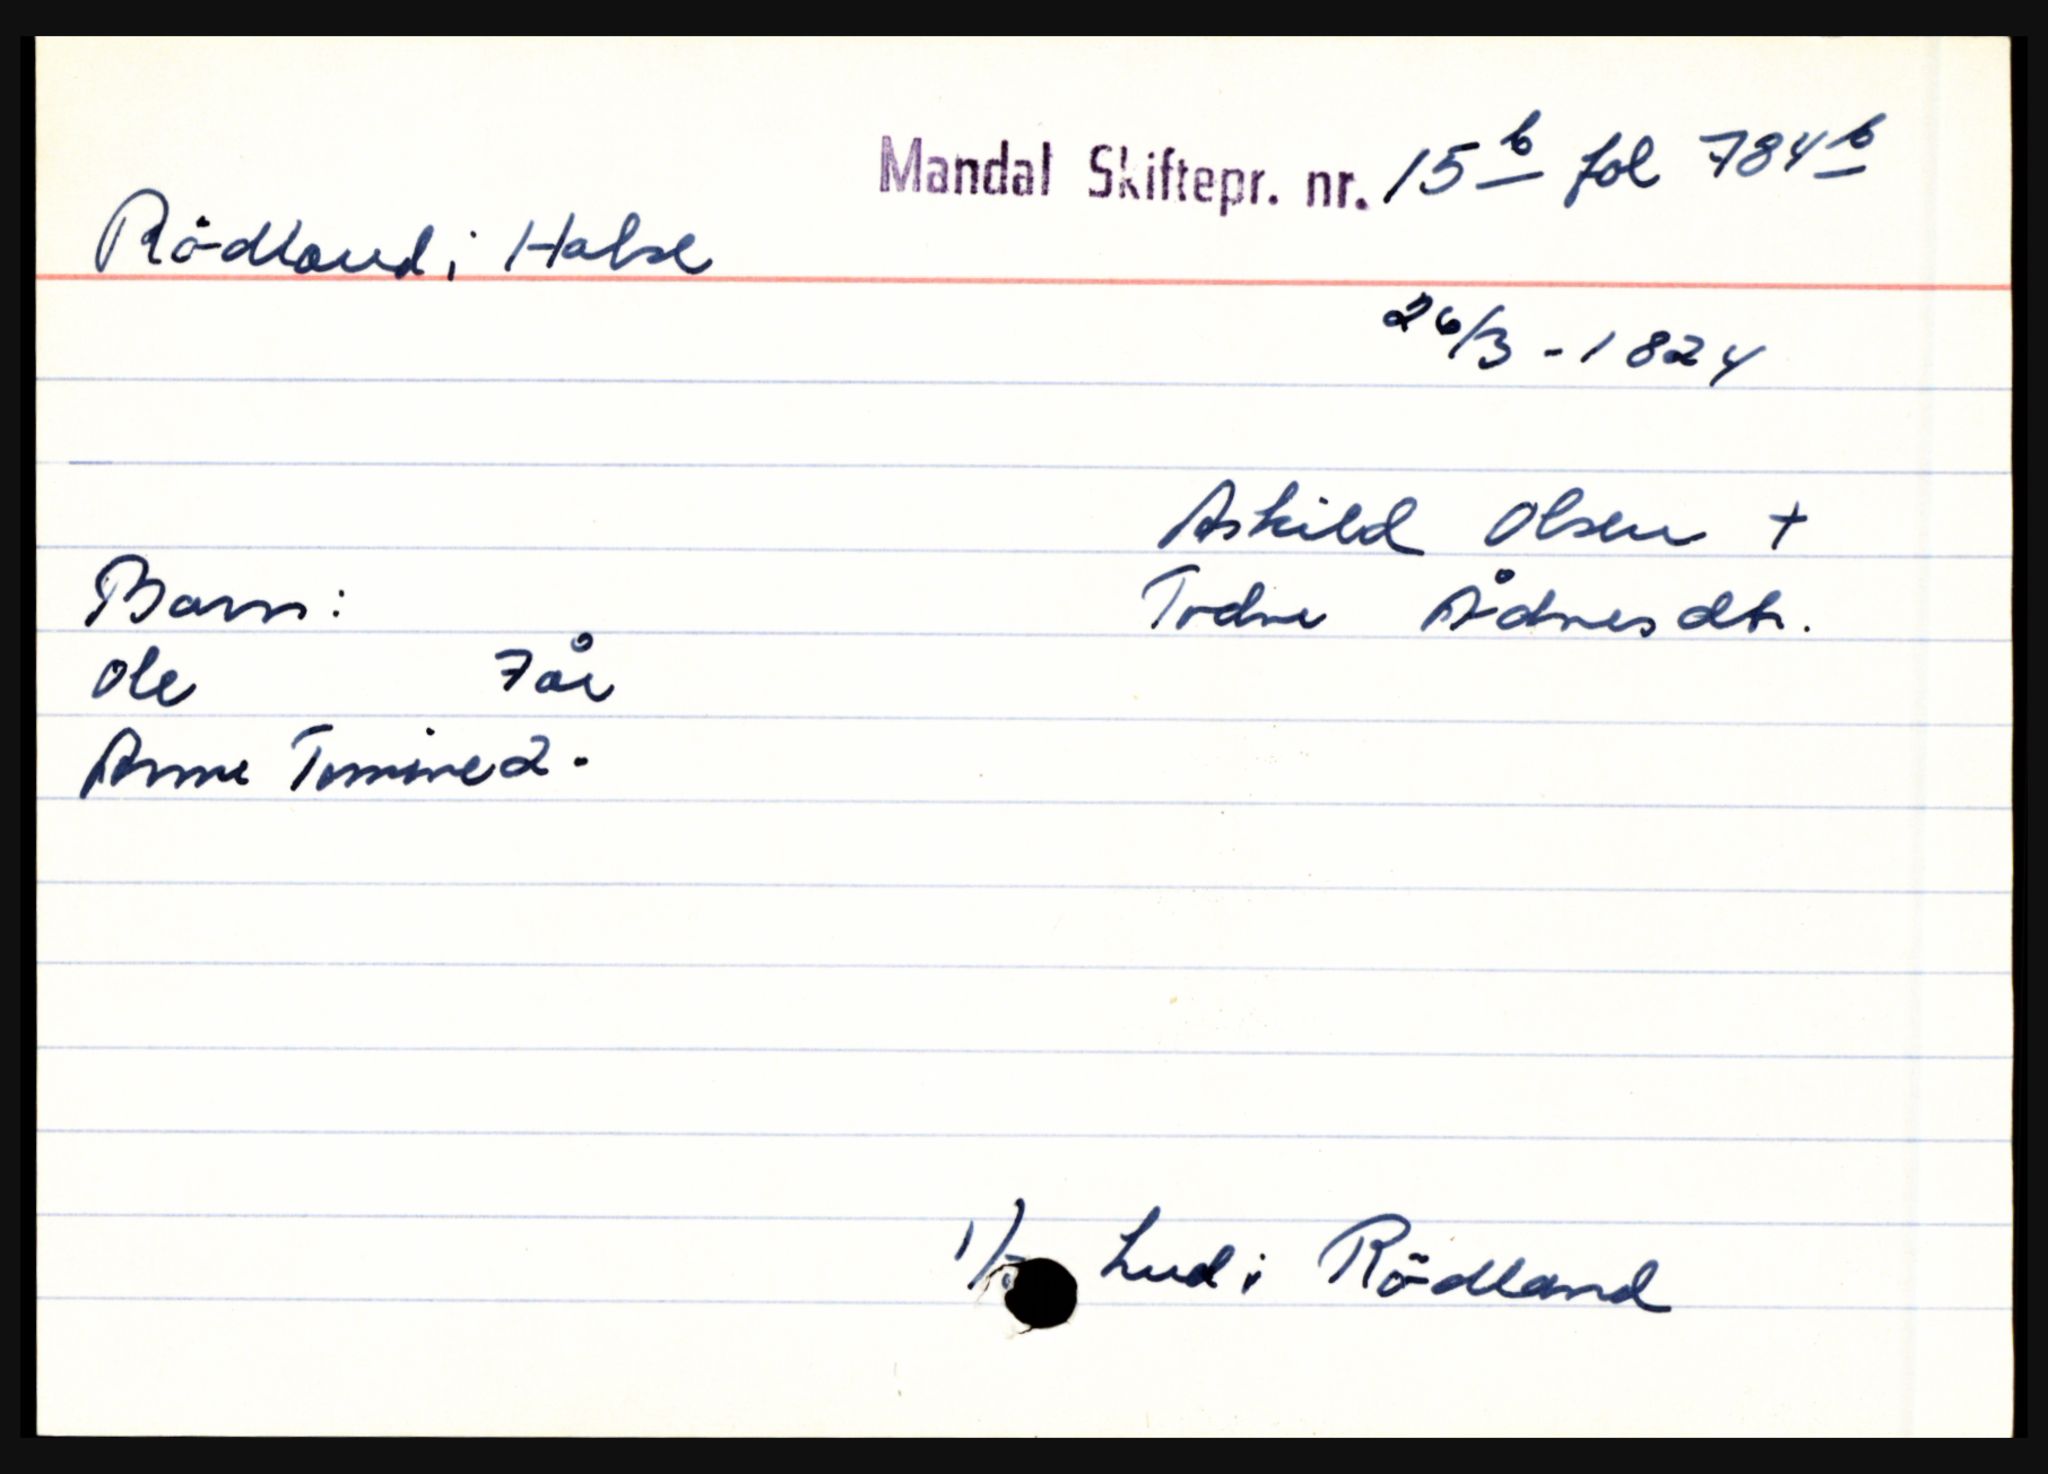 Mandal Skiftepr. nr. 15 b fol 784 b
Rödland i Halse
26/3 - 1824
Askild Olsen +
Todne Ådnesdtr.
Barn:
Ole 7 år
Anne Tomine 2 -
Lud i Rödland